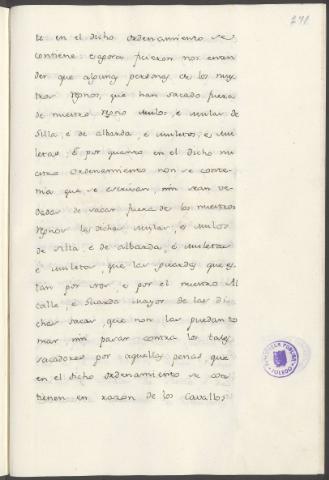 271
te en el dicho ordenamiento se
contiene: e agora ficieron nos enten
der que algunas personas de los nues
tros Reynos, que han sacado fuera
de nuestro Reyno mulos, e mulas de
silla, e de albarda, e muletos, e mu
letas; E por quanto en el dicho nu
estro ordenamiento non se conte
nia que se escrivan, nin sean ve
dadas de sacar fuera de los nuestros
Reynos las dichas mulas, e mulos
de silla, e de albarda, e muletas
e muletos, que las guardas que es
tan por vos, e por el nuestro Al
calle, e Guarda mayor de las di
chas sacas, que non las puedan to
mar, nin pasar contra los tales
sacadores por aquellas penas, que
en el dicho ordenamiento se con
tienen en razon de los Cavallos
BIBLIOTECA PUBLICA
TOLEDO